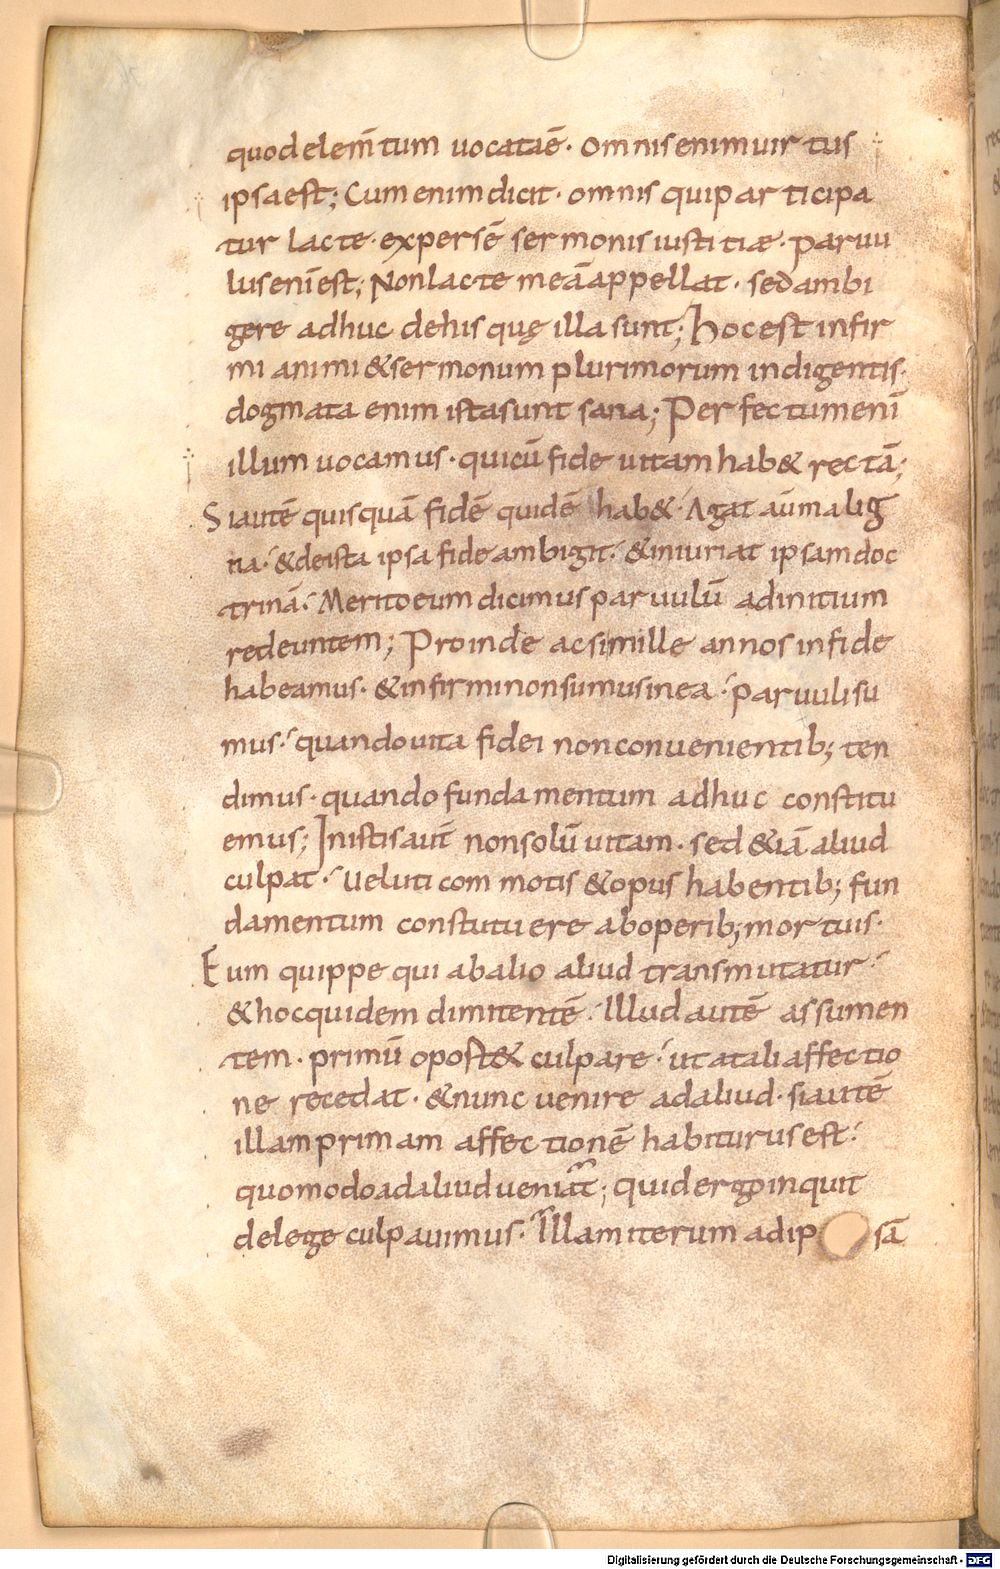 quod elem̄tum uocataē· Omnis enim uirtus
ipsa est; Cum enim dicit· omnis qui participa
tur lacte· expers ē sermonis iustitiæ· paruu
lus enī est; Non lacte meā appellat· sed ambi
gere adhuc de his quę illa sunt; Hoc est infir
mi animi & sermonum plurimorum indigentis·
dogmata enim ista sunt sana; Perfectum enī
illum uocamus· qui cū fide uitam hab& rectā;
Si autē quisquā fidē quidē hab&· Agat aūt malig
na· & de ista ipsa fide ambigit· & iniuriat ipsam doc
trinā· Merito eum dicimus paruulū ad initium
redeuntem; Proinde ac si mille annos in fide
habeamus· & infirmi non sumus in ea· paruuli su
mus· quando uita fidei non conuenientib; ten
dimus· quando fundamentum adhuc constitu
emus; In istis aut̄ non solū uitam· sed &iā aliud
culpat· ueluti commotis & opus habentib; fun
damentum constituere ab operib; mortuis·
Eum quippe qui ab alio aliud transmutatur·
& hoc quidem dimitentē· Illud autē assumen
tem· primū oport& culpare· ut a tali affectio
ne recedat· & nunc uenire ad aliud· si autē
illam primam affectionē habiturus est·
quomodo ad aliud ueniat; quid ergo inquit
de lege culpauimus· Illam iterum ad ip sā
Digitalisierung gefördert durch die Deutsche Forschungsgemeinschaft - DFG